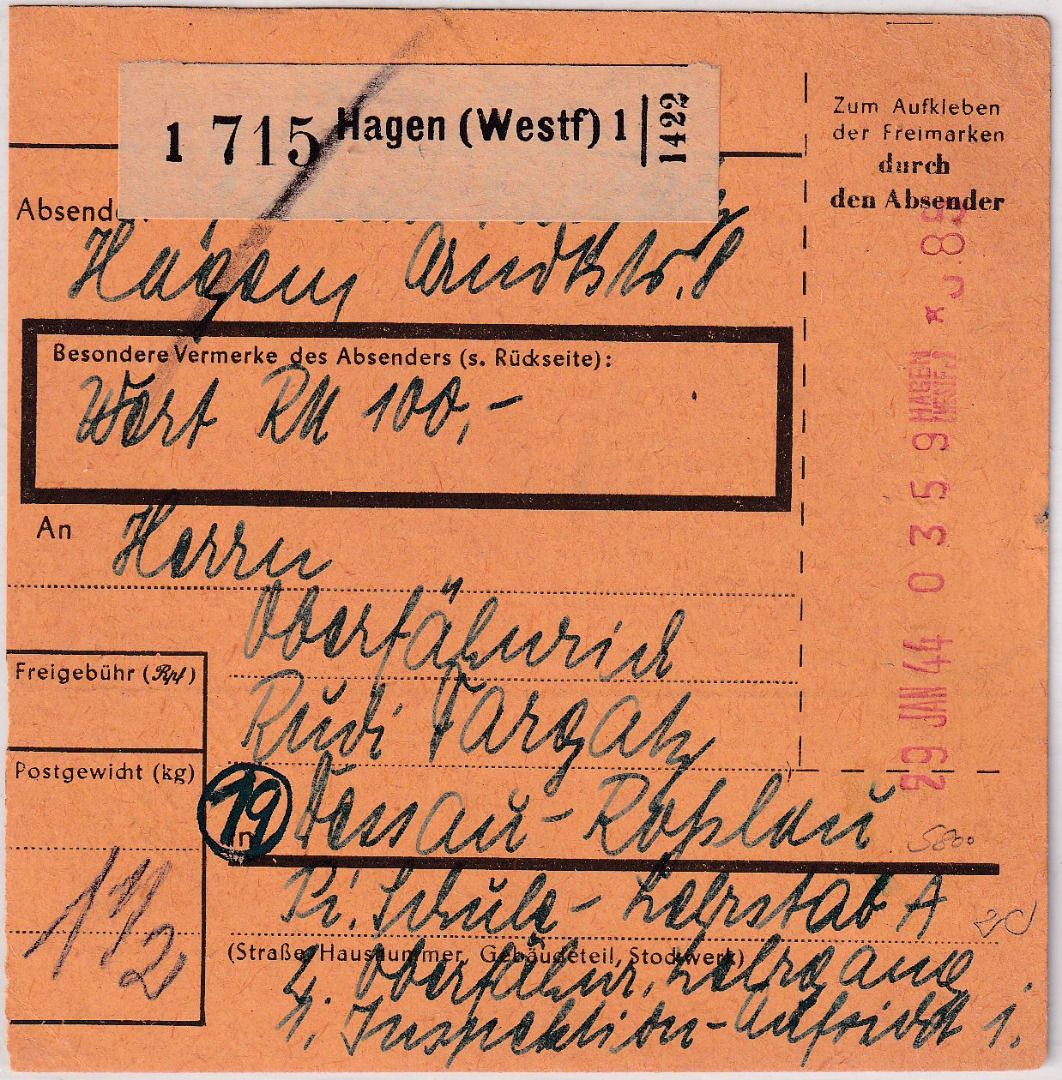 1 715 Hagen (Westf) 1
1422
Zum Aufkleben
der Freimarken
durch
den Absender
Absender
Hagen, Arndtstr. 8
Besondere Vermerke des Absenders (s. Rückseite):
Wert RM 100,-
An Herrn
Oberfähnrich
Rudi Targatz
19 in Dessau-Roßlau
Pi. Schule - Lehrstab A
(Straße, Hausnummer, Gebäudeteil, Stockwerk)
4. Oberfähnr. Lehrgang
4. Inspektion-Aufsicht 1.
Freigebühr (Rpf)
Postgewicht (kg)
1 1/2
29 JAN 44 0359 HAGEN (WESTF.) *
5800